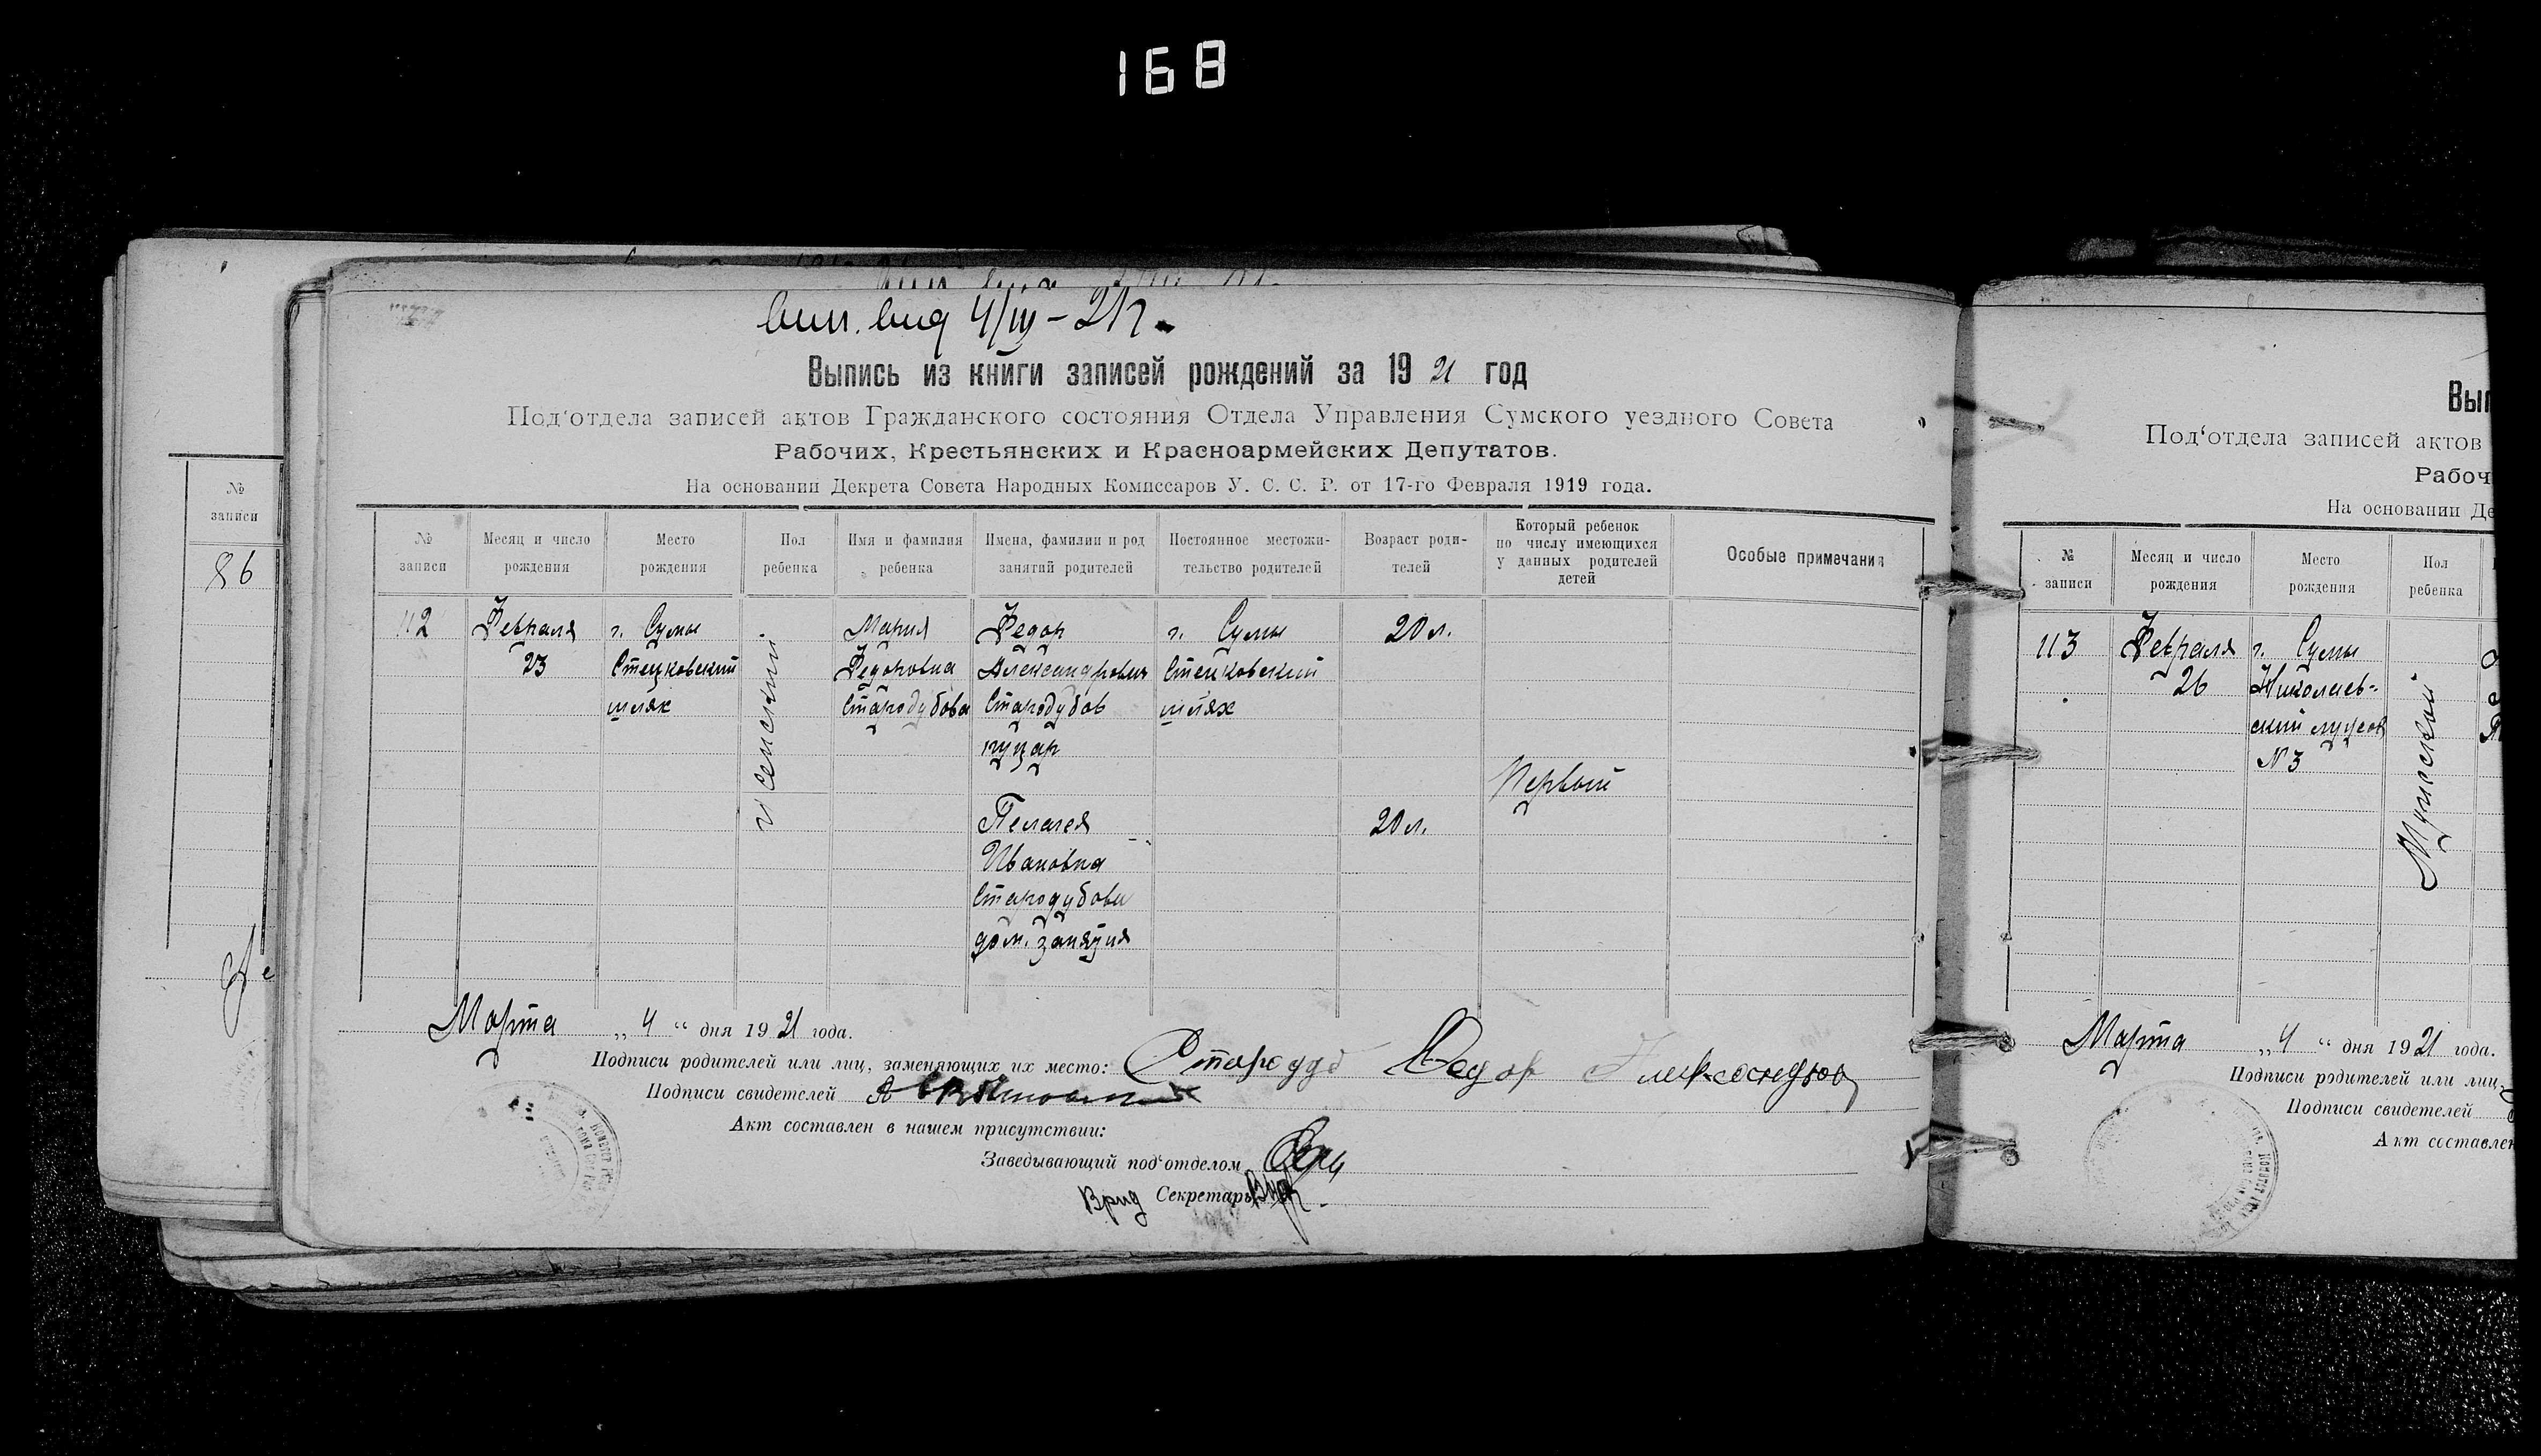 168
вып. вид 4/III – 21 г.
Выпись из книги записей рождений за 19 21 год
Под‘отдела записей актов Гражданского состояния Отдела Управления Сумского уездного Совета
Рабочих, Крестьянских и Красноармейских Депутатов.
На основании Декрета Совета Народных Комиссаров У. С. С. Р. от 17-го Февраля 1919 года.
№ записи
Месяц и число рождения
Место рождения
Пол ребенка
Имя и фамилия ребенка
Имена, фамилии и род занятий родителей
Постоянное местожительство родителей
Возраст родителей
Который ребенок по числу имеющихся у данных родителей детей
Особые примечания
112
Февраля
23
г. Сумы
Стецковский
шлях
женский
Мария
Федоровна
Стародубова
Федор
Александрович
Стародубов
Пелагея
Ивановна
Стародубова
дом. занятия
г. Сумы
Стецковский
шлях
20 л.
20 л.
Первый
Марта „ 4 “ дня 19 21 года.
Подписи родителей или лиц, заменяющих их место: Стародуб Федор
Подписи свидетелей
Акт составлен в нашем присутствии:
Заведывающий под‘отделом
Врид Секретарь
№
записи
86
Под‘отдела записей актов
На основании
№ записи
Месяц и число рождения
Место рождения
Пол ребенка
113
Февраля
26
г. Сумы
Николаев-
ский
№ 3
Мужской
Марта „ 4 “ дня 19 21 года.
Подписи родителей или лиц,
Подписи свидетелей
Акт составлен